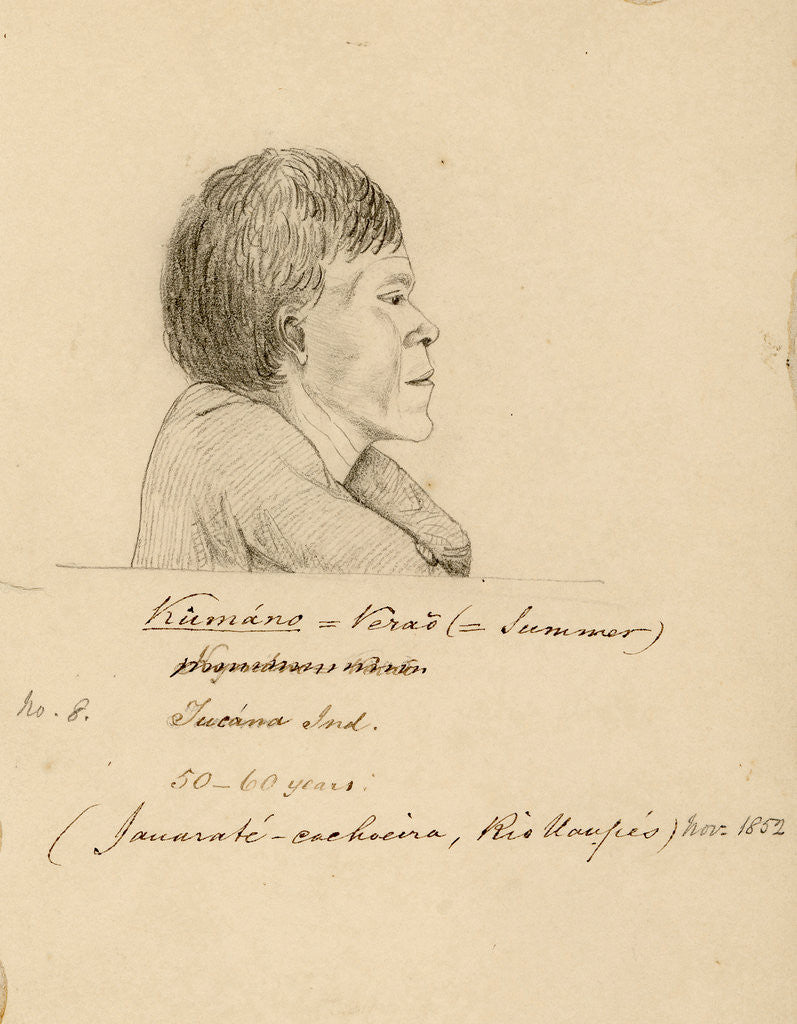 Kumáno = Veraõ (= Summer)
No. 8.
Tucána Ind.
50–60 years.
(Jauaraté-cachoeira, Rio Uaupés) Nov. 1852